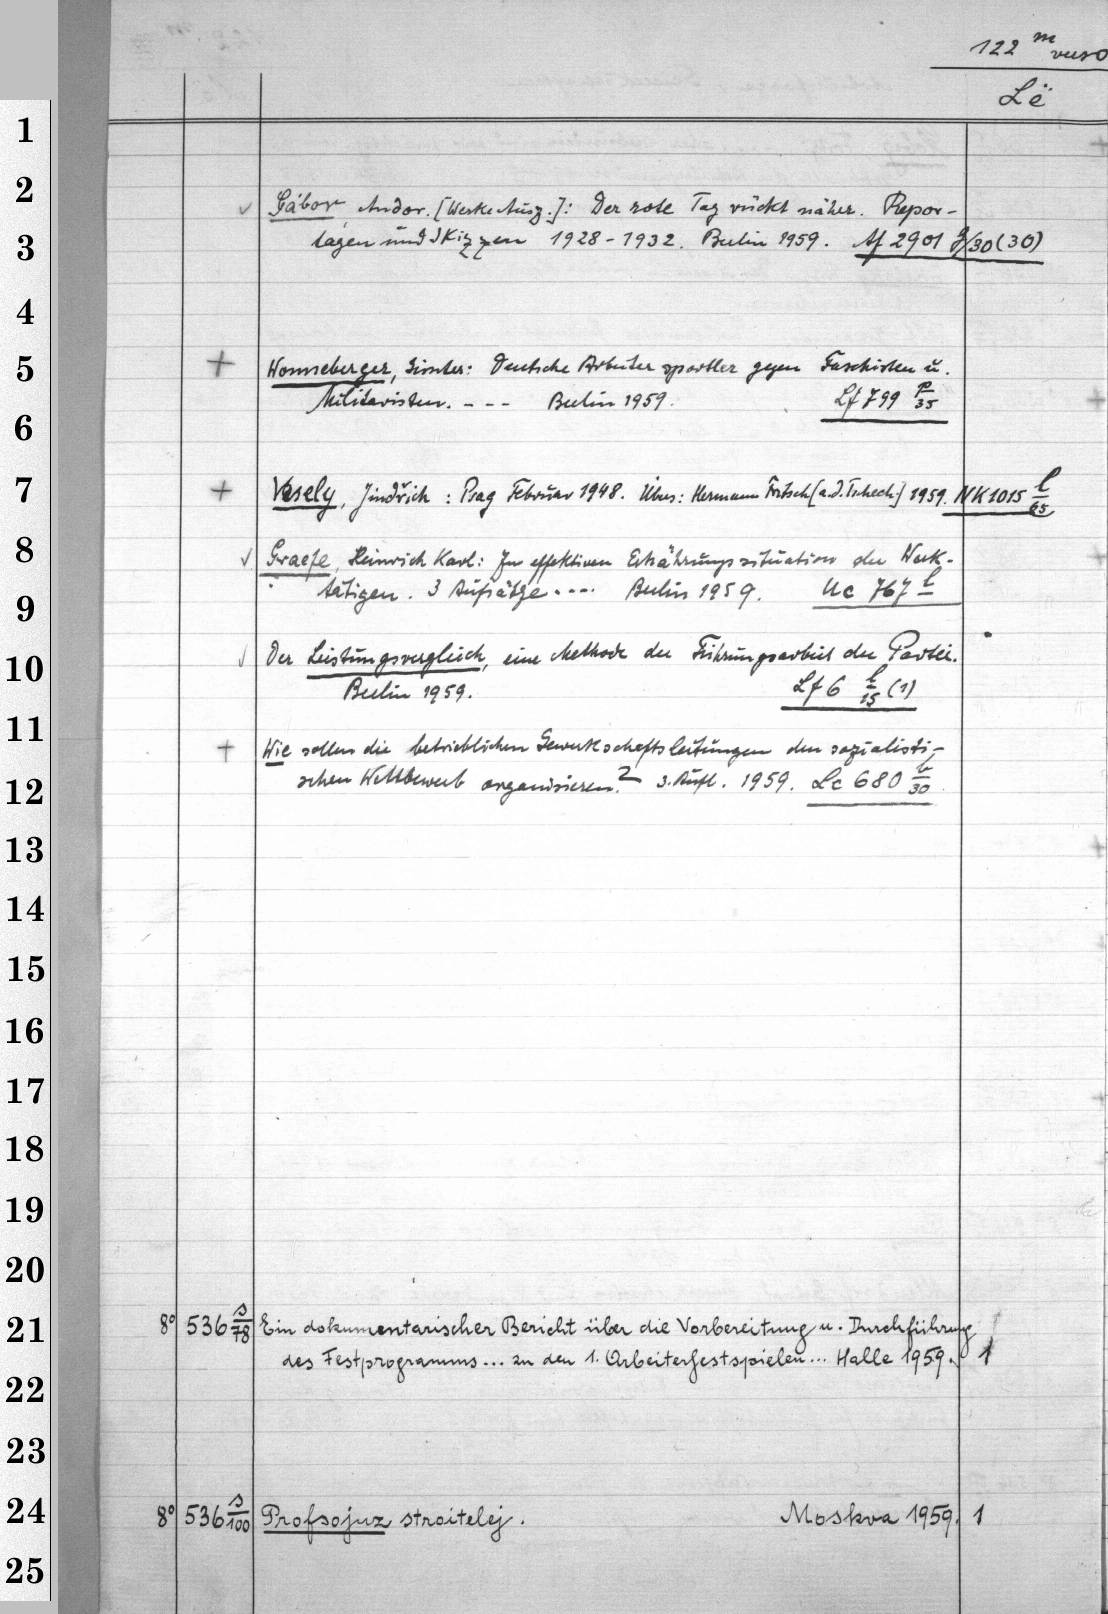 122 m verso
Lë
Gábor, Andor. [Werke Ausz.]: Der rote Tag rückt näher. Repor-
tagen und Skizzen 1928-1932. Berlin 1959. Af 2901 g/30 (30)
Wonneberger, Günter: Deutsche Arbeitersportler gegen Faschisten u.
Militaristen. - - - Berlin 1959. Lf 799 p/35
Vesely, Jindřich : Prag Februar 1948. Übers: Hermann [a.d.Tschech] 1959. NK 1015 l/65
Graefe, Heinrich Karl: Zur effektiven Ernährungssituation der Werk-
tätigen. 3 Aufsätze - - - Berlin 1959. Uc 767 l
Der Leistungsvergleich, eine Methode der Führungsarbeit der Partei.
Berlin 1959. Lf 6 l/15 (1)
Wie sollen die betrieblichen Gewerkschaftsleitungen den sozialisti-
schen Wettbewerb organisieren? 3. Aufl. 1959. Lc 680 b/30
8° 536 s/78 Ein dokumentarischer Bericht über die Vorbereitung u. Durchführung
des Festprogramms... zu den 1. Arbeiterfestspielen... Halle 1959. 1
8° 536 s/100 Profsojuz stroitelej. Moskva 1959. 1
1
2
3
4
5
6
7
8
9
10
11
12
13
14
15
16
17
18
19
20
21
22
23
24
25